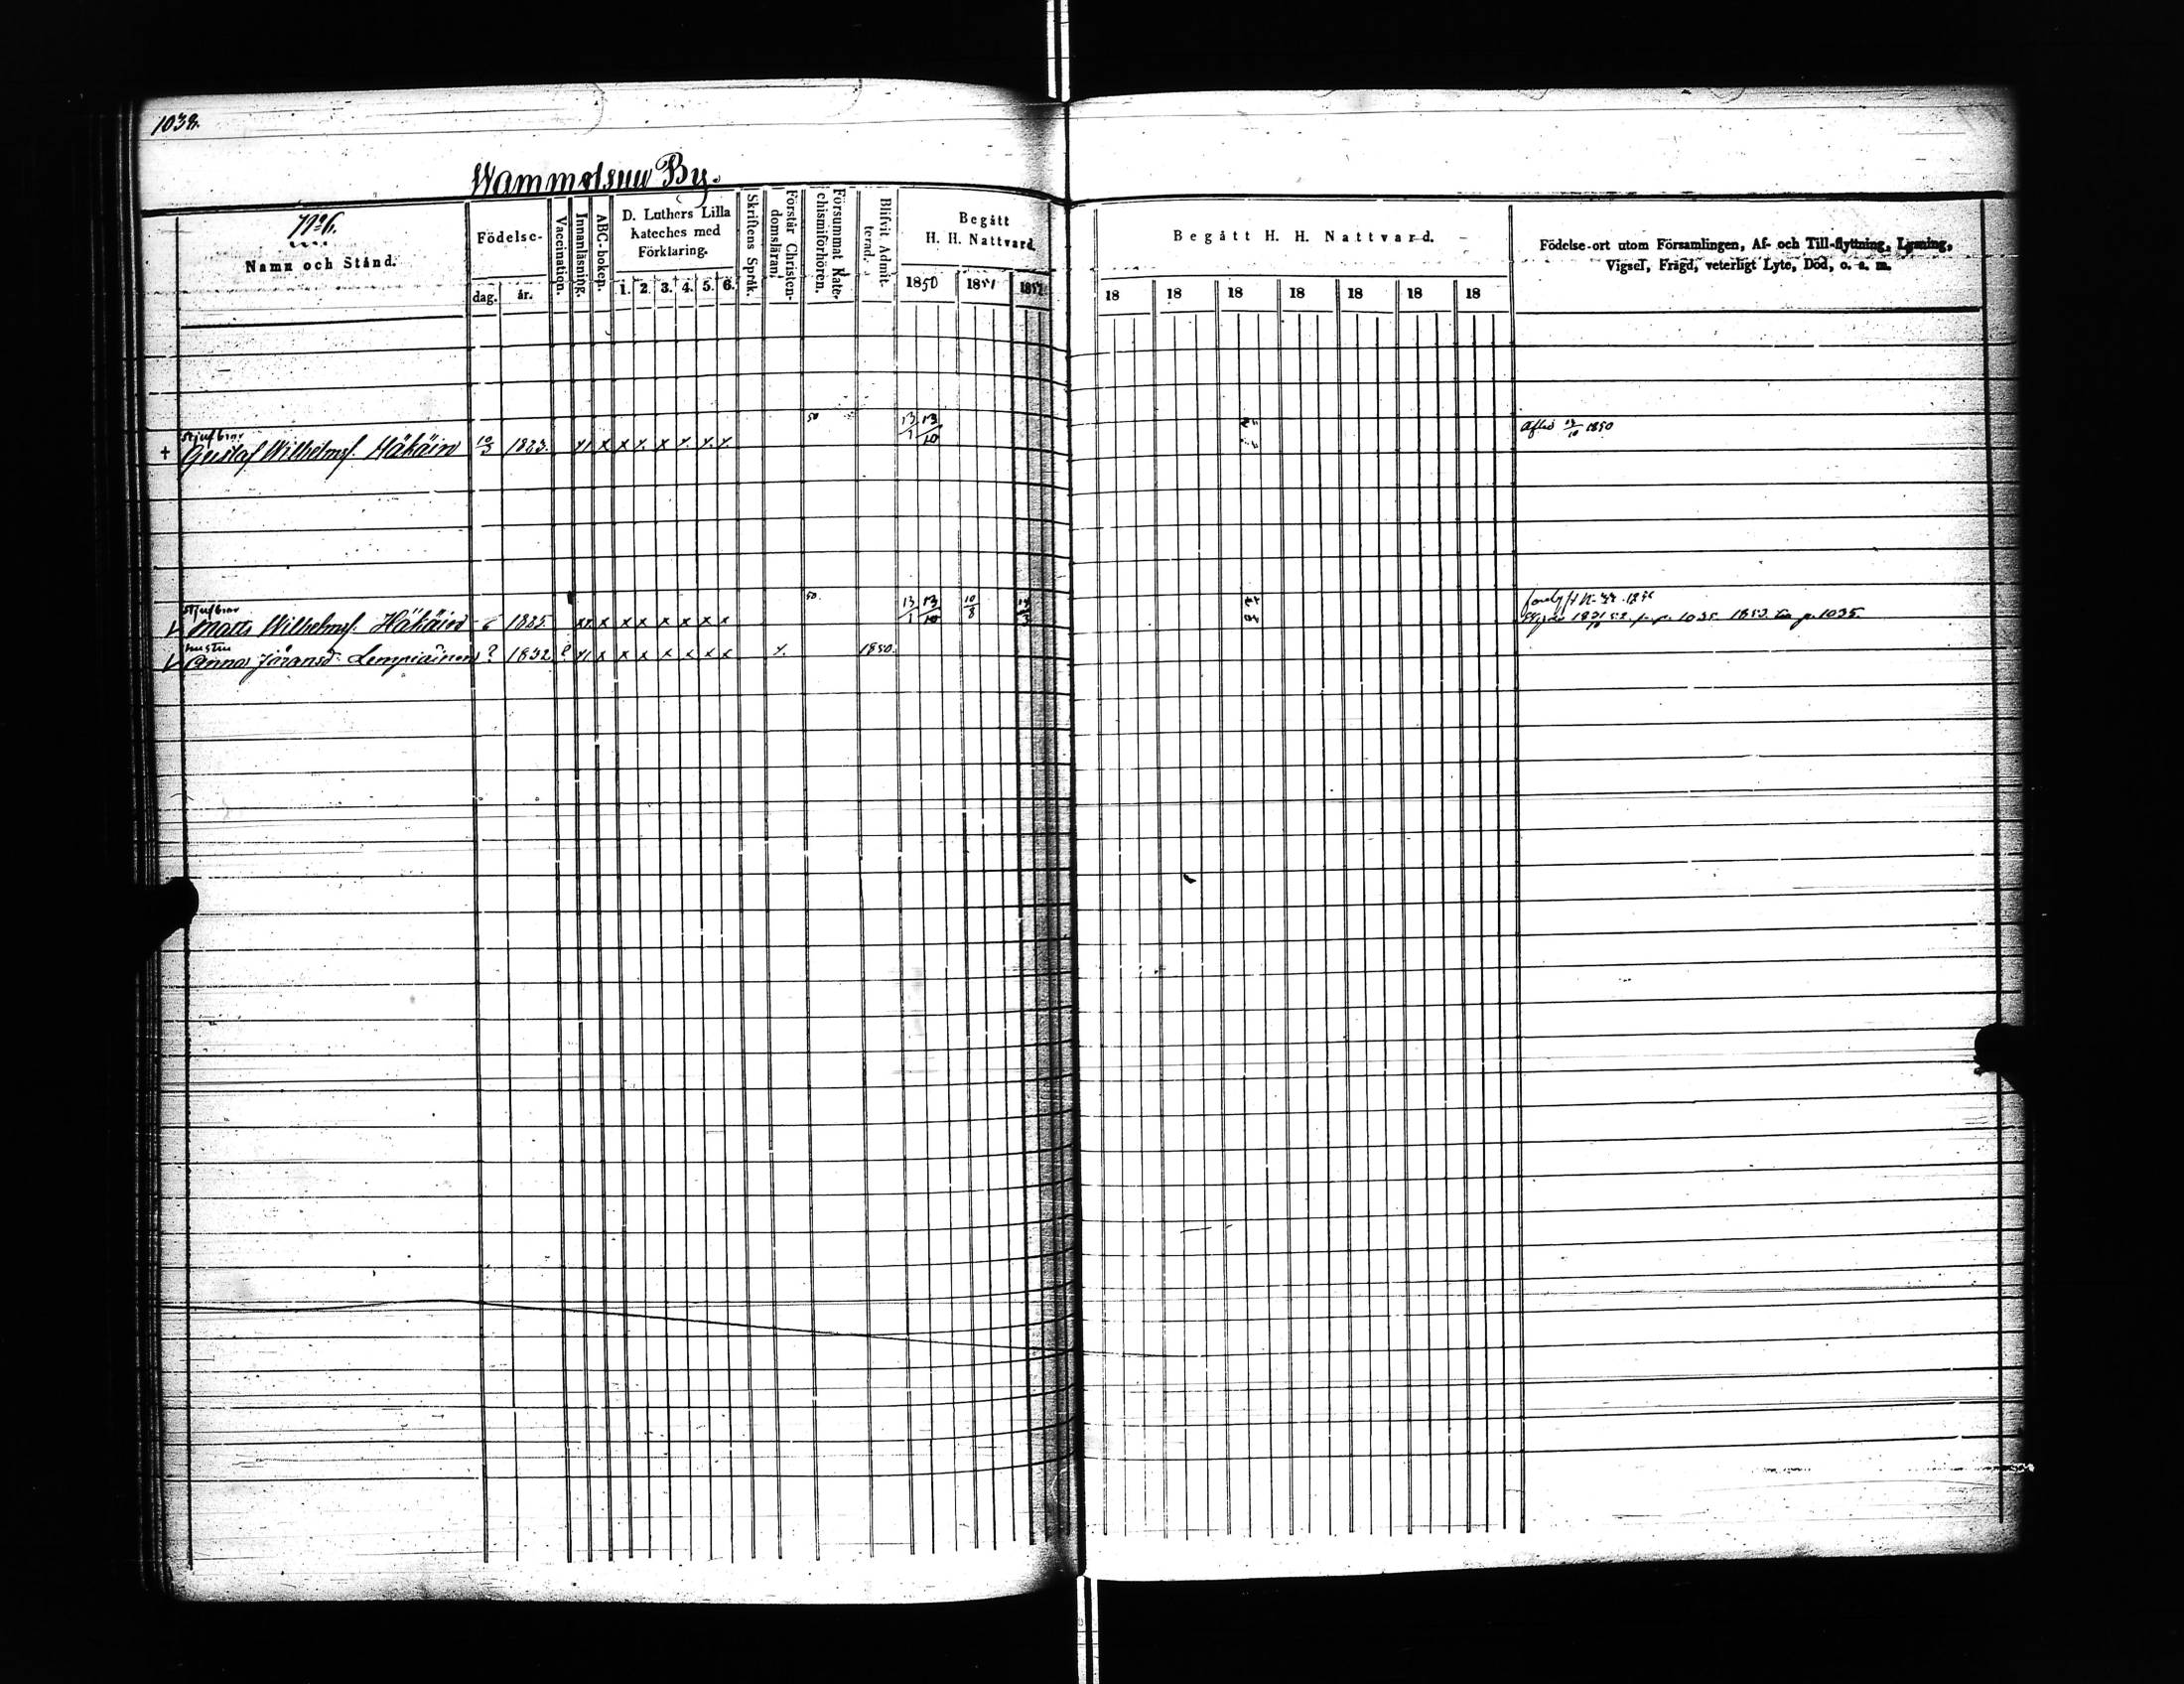 1038.
Wammolsuu By.
No 6.
Namn och Stånd.
Födelse-
dag. år.
Vaccination.
Innanläsning.
ABC-boken.
D. Luthers Lilla
Kateches med
Förklaring.
1. 2. 3. 4. 5. 6.
Skriftens Språk.
Förstår Christen-
domsläran.
Försummat Kate-
chismiförhören.
Blifvit Admit-
terad.
Begått
H. H. Nattvard.
1850 1851 1852
Begått H. H. Nattvard.
18 18 18 18 18 18 18
Födelse-ort utom Församlingen, Af- och Till-flyttning, Lysning,
Vigsel, Frägd, veterligt Lyte, Död, o. s. m.
Stjufbror
+ Gustaf Wilhelmsf. Häkäin 10/3 1823. x x x x x x x 50 13/1 13/10 1850
Stjufbror
Matts Wilhelmsf. Häkäin 6 1825 x x x x x x x 50. 13/1 13/10 10/8 p. 1035. 1853. p. 1035.
hustru
Anna Jöransd. Lempiäinen ? 1832 ? x x x x x x x 1850.